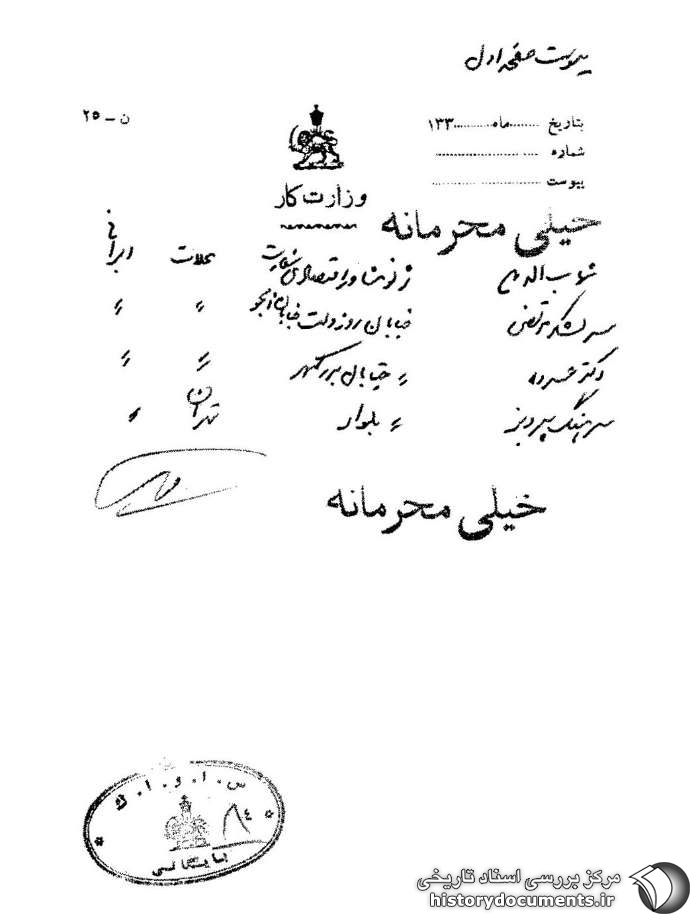 پیوست صفحه اول
ن - ۲۵
بتاریخ ........ماه.........۱۳۳
شماره
پیوست
وزارت کار
خیلی محرمانه
شهاب الدین ژنو محلات ایرانی
سرلشکر مرتضی خیابان روزولت خیابان " "
دکتر خسرو " خیابان بزرگمهر " "
سرهنگ پرویز " بلوار تهران "
خیلی محرمانه
س . ا . و . ا . ک
۸۴
بایگانی
مرکز بررسی اسناد تاریخی
historydocuments.ir